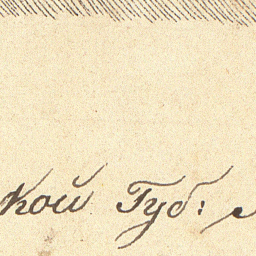 кой Губ: